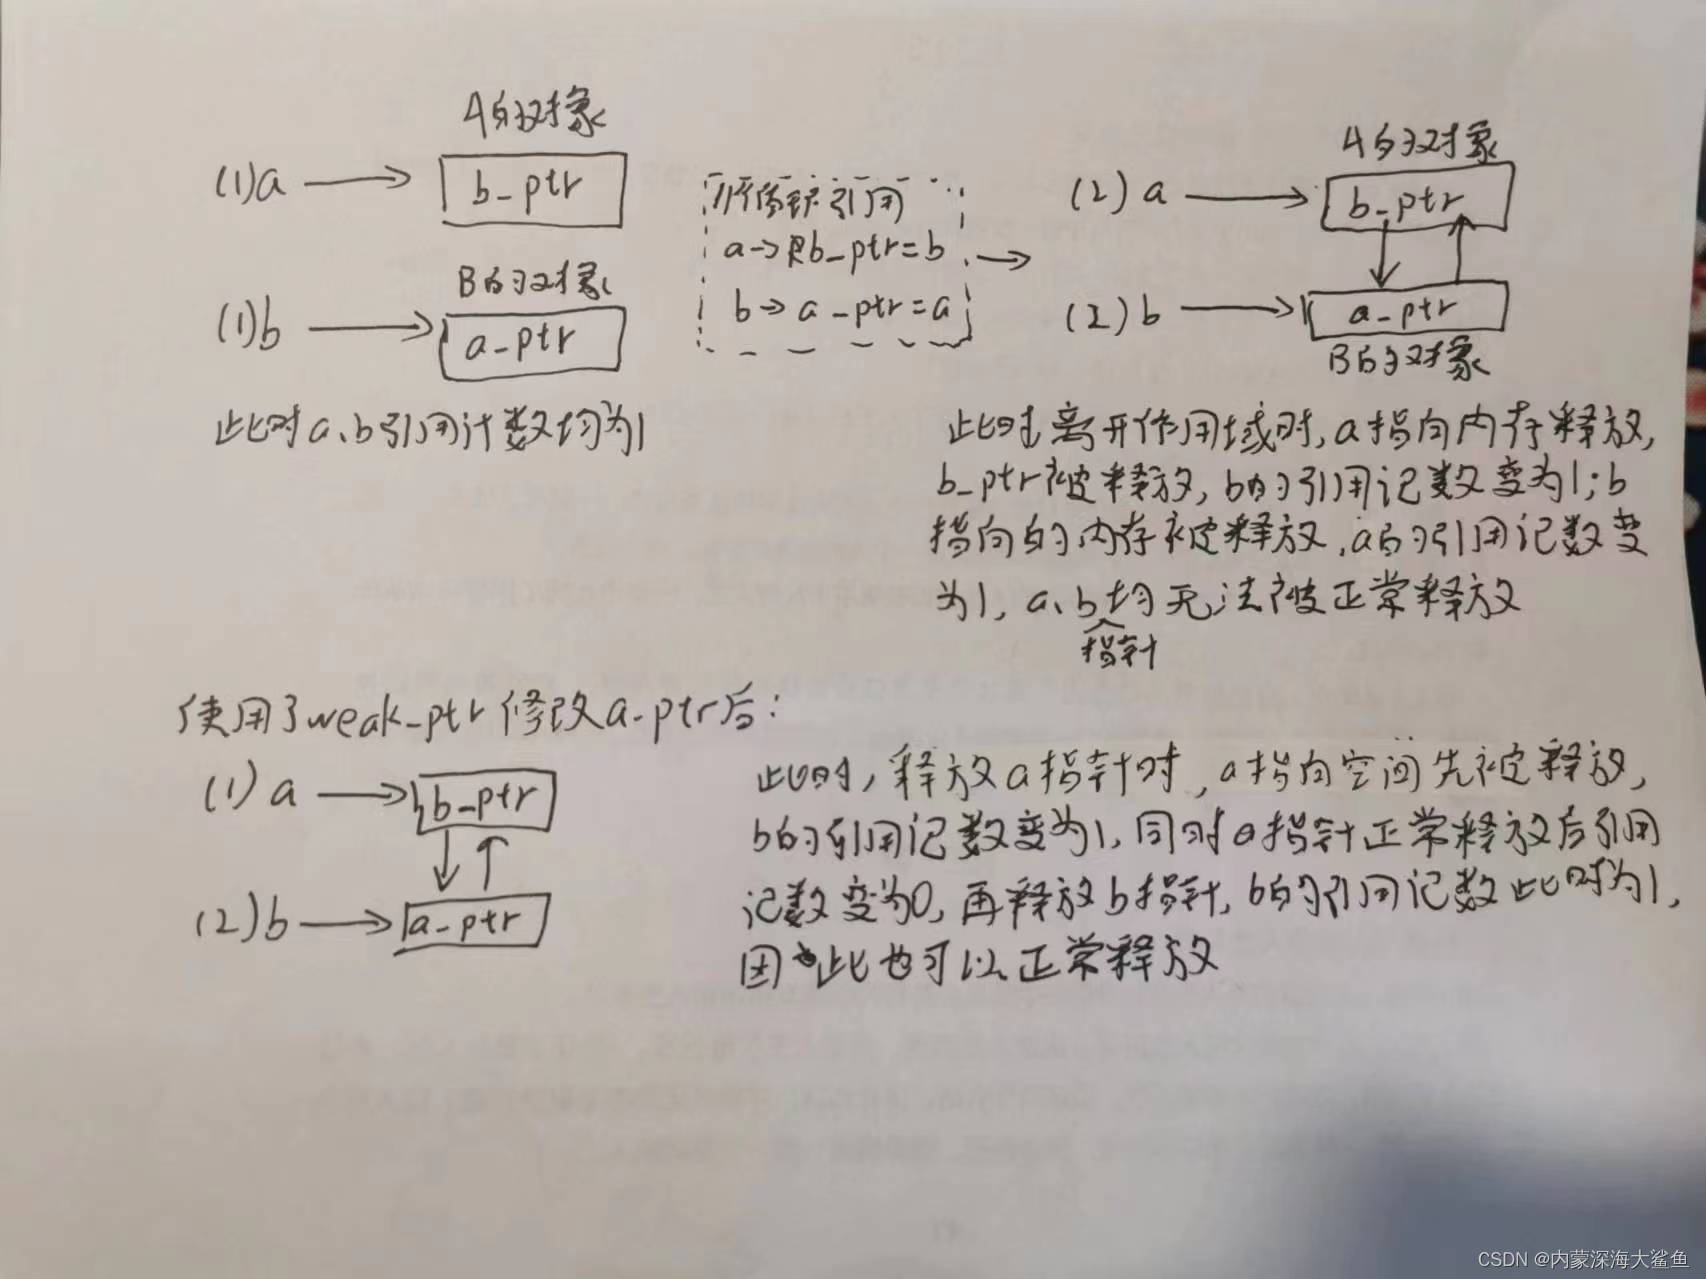 A的对象
(1)a → b_ptr
B的对象
(1)b → a_ptr
此时a、b引用计数均为1
循环引用
a→b_ptr=b
b→a_ptr=a
A的对象
(2)a → b_ptr
(2)b → a_ptr
B的对象
此时离开作用域时,a指向内存释放,
b_ptr被释放,b的引用记数变为1;b
指向的内存被释放,a的引用记数变
为1,a、b均无法被正常释放
指针
使用了weak_ptr修改a_ptr后:
(1)a → b_ptr
(2)b → a_ptr
此时,释放a指针时,a指向空间先被释放,
b的引用记数变为1,同时a指针正常释放后引用
记数变为0,再释放b指针,b的引用记数此时为1,
因此也可以正常释放
CSDN @内蒙深海大鲨鱼